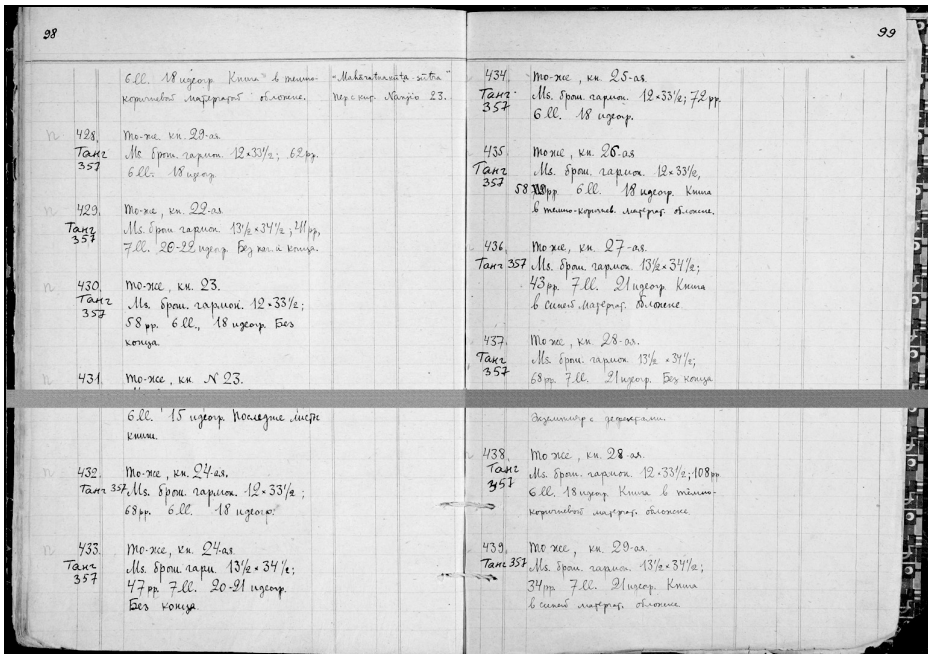 98
6 ll. 18 идеогр. Книга в темно-
коричневой матерчатой обложке.
"Mahāratnakūṭa-sūtra"
пер. с кит. Nanjio 23.
428. То-же, кн. 29-ая.
Танг 357
Ms. брош. гармон. 12×33½; 62 pp.
6 ll. 18 идеогр.
429. То-же, кн. 22-ая.
Танг 357
Ms. брош. гармон. 13½×34½; 41 pp.
7 ll. 20-22 идеогр. Без нач. и конца.
430. То-же, кн. 23.
Танг 357
Ms. брош. гармон. 12×33½;
58 pp. 6 ll., 18 идеогр. Без
конца.
431. То-же, кн. N 23.
6 ll. 15 идеогр. Последние листы
книги.
432. То-же, кн. 24-ая.
Танг 357 Ms. брош. гармон. 12×33½;
68 pp. 6 ll. 18 идеогр.
433. То-же, кн. 24-ая.
Танг 357
Ms. брош. гарм. 13½×34½;
47 pp. 7 ll. 20-21 идеогр.
Без конца.
99
434. То-же, кн. 25-ая.
Танг. 357
Ms. брош. гармон. 12×33½; 72 pp.
6 ll. 18 идеогр.
435. То же, кн. 26-ая
Танг 357
Ms. брош. гармон. 12×33½,
58 pp 6 ll. 18 идеогр. Книга
в темно-коричнев. матерчат. обложке.
436. То же, кн. 27-ая.
Танг 357 Ms. брош. гармон. 13½×34½;
43 pp. 7 ll. 21 идеогр. Книга
в синей матерчат. обложке
437. То же, кн. 28-ая.
Танг 357
Ms. брош. гармон. 13½×34½;
68 pp. 7 ll. 21 идеогр. Без конца
Экземпляр с дефектами.
438. То же, кн. 28-ая.
Танг 357
Ms. брош. гармон. 12×33½; 108 pp
6 ll. 18 идеогр. Книга в темно-
коричневой матерчат. обложке.
439. То же, кн. 29-ая.
Танг 357 Ms. брош. гармон. 13½×34½;
34 pp. 7 ll. 21 идеогр. Книга
в синей матерчат. обложке